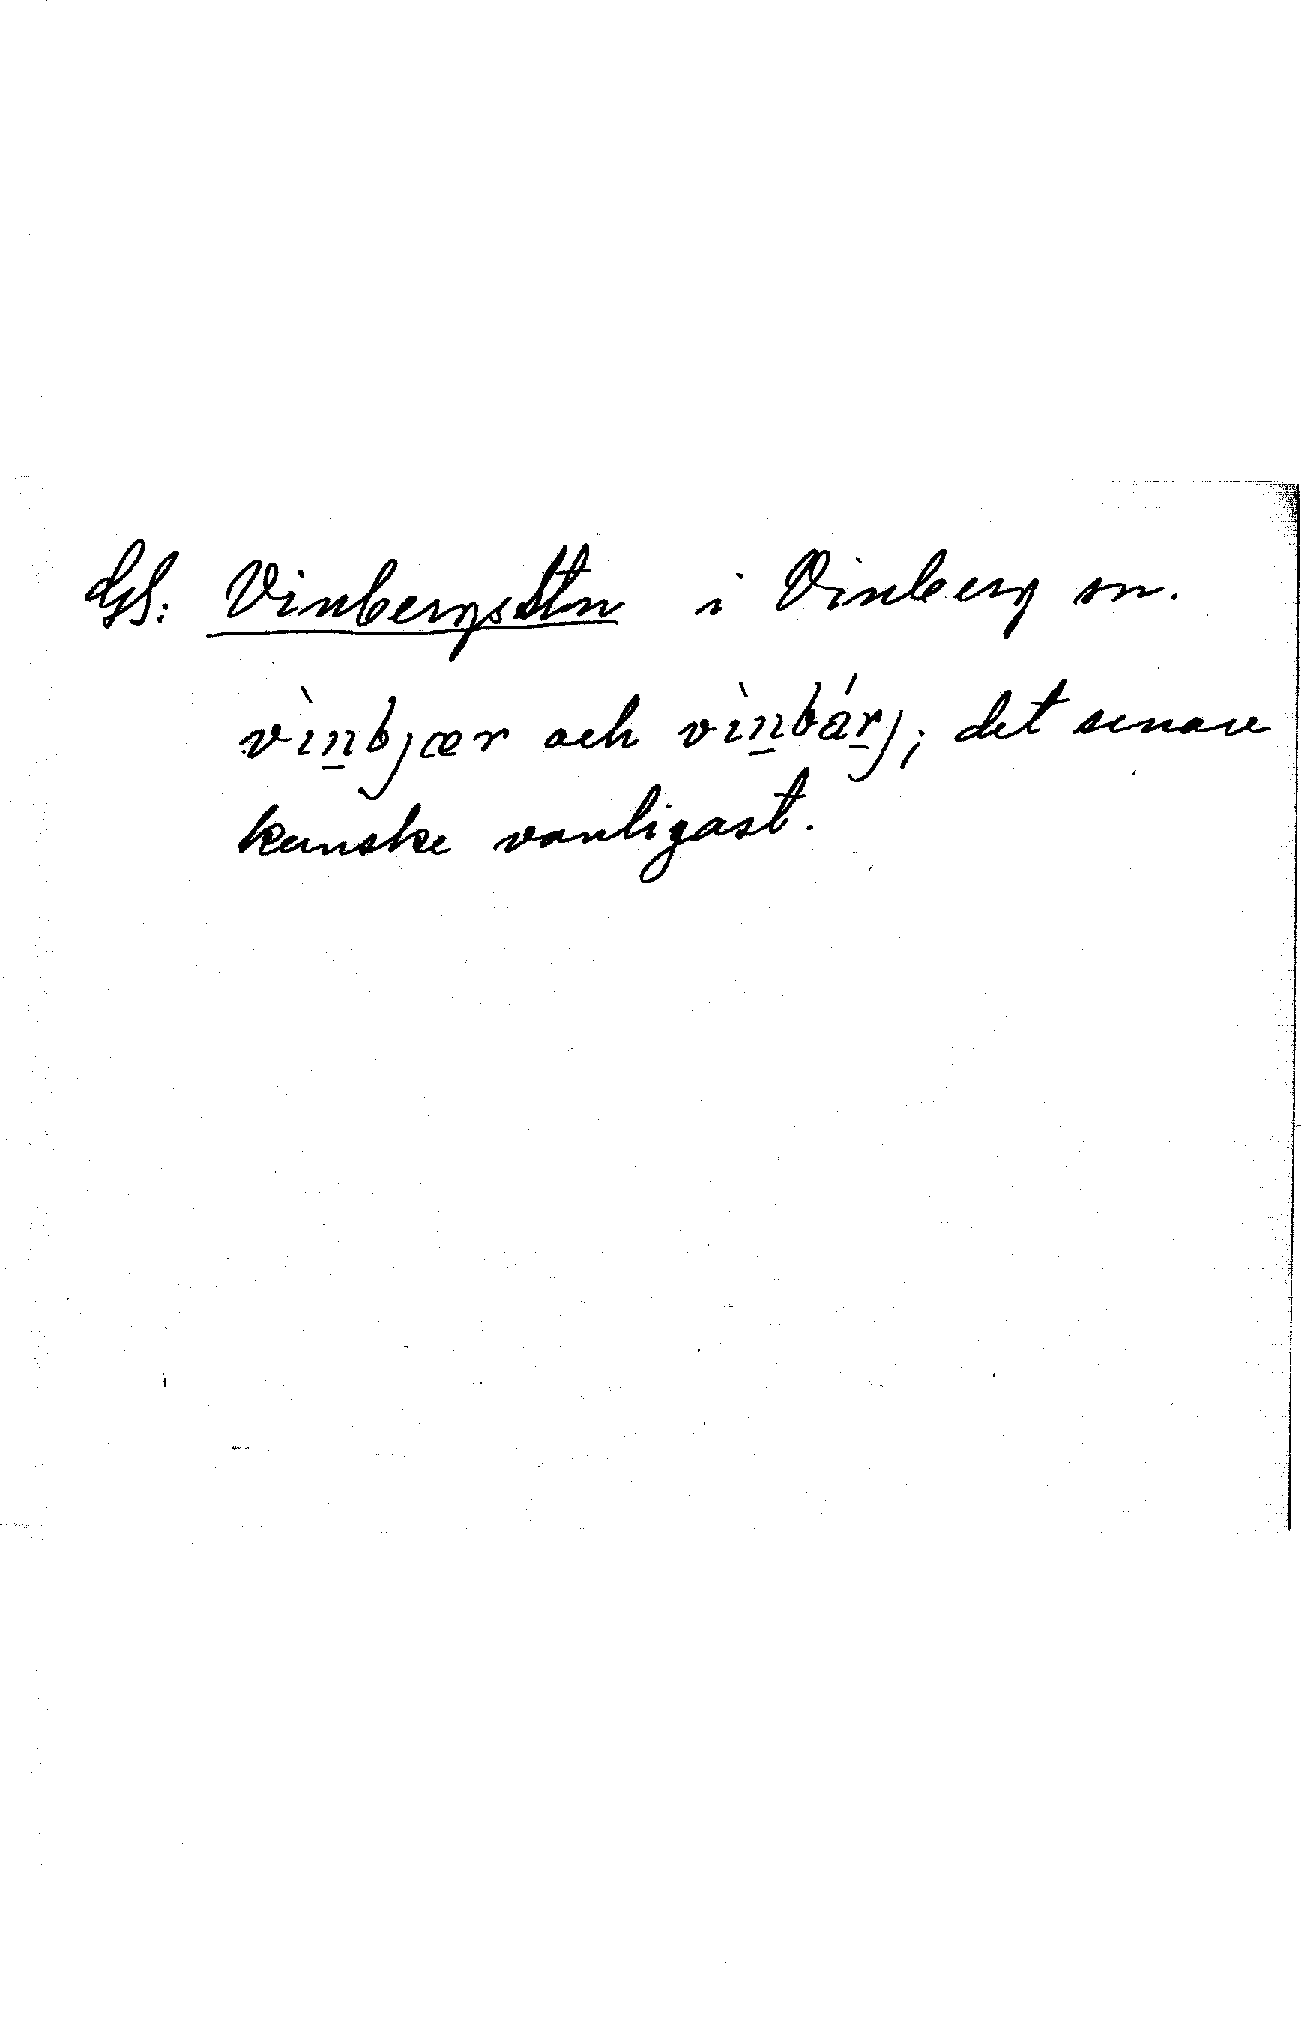 Vinbergs stn i Vinberg sn.
vìnbjær och vìnbárj; det senare
kanske vanligast.